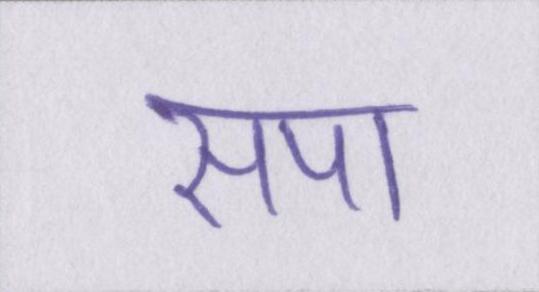 सपा